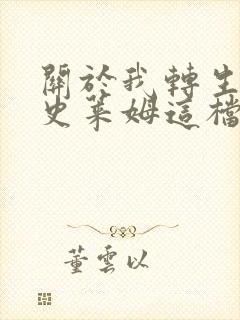 關於我轉生
史萊姆這檔
董雲以